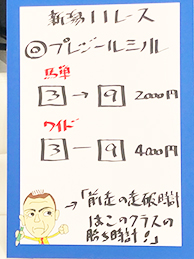 新潟11レース
◎プレジールミノル
馬単
3→9 2000円
ワイド
3-9 4000円
→「前走の走破時計
はこのクラスの
勝ち時計!」